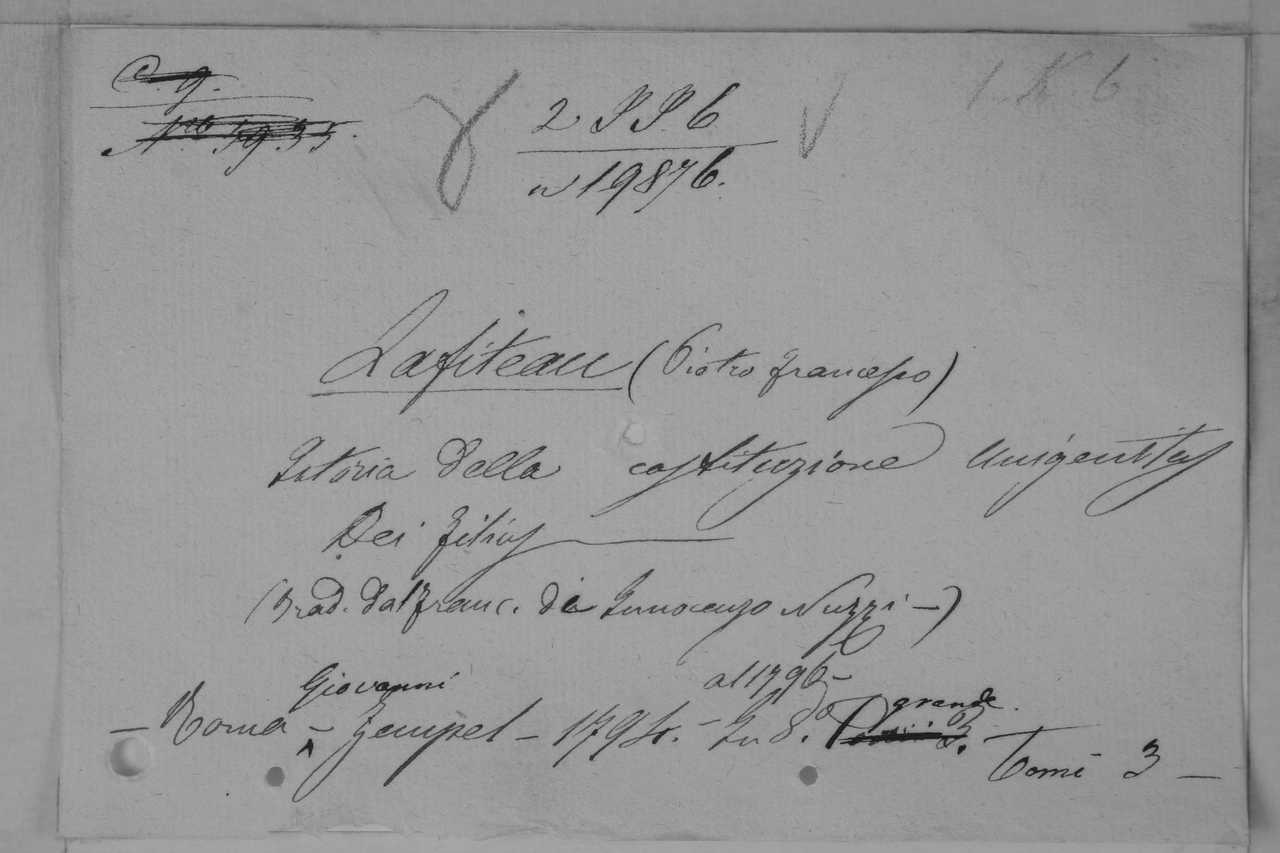 C. 9.
2 P P. 6
1. K. 6
Nro 59.35.
n 19876.
Lafiteau (Pietro Francesco)
Istoria della costituzione Unigenitus
Dei Filius
(Trad. dal franc. di Innocenzo Nuzzi —)
Giovanni al 1796 —
— Roma — Zempel — 1794. — In 8.º grande.
Tomi 3 —